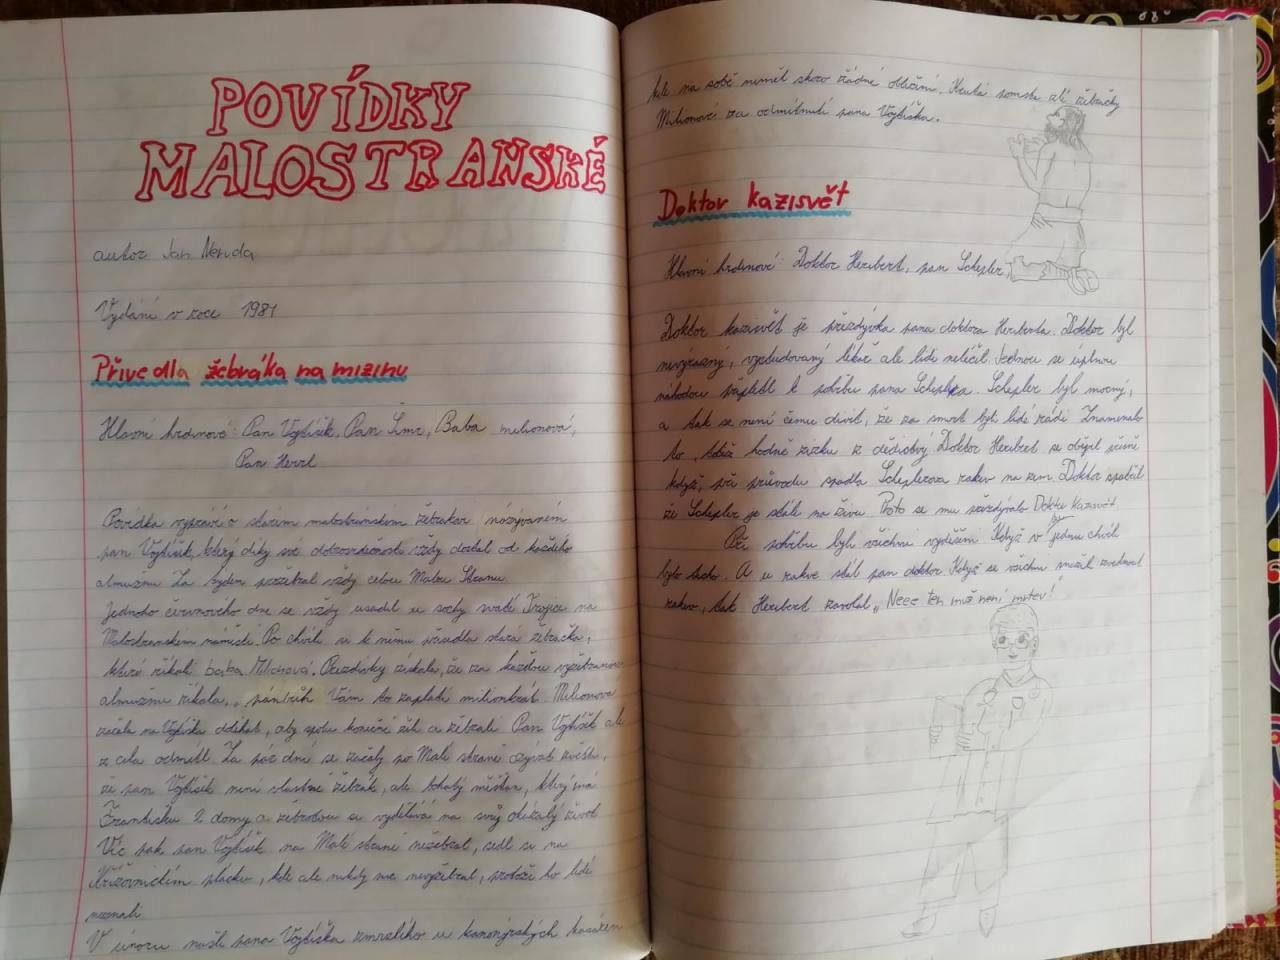 POVÍDKY
MALOSTRANSKÉ
autor Jan Neruda
Vydání v roce 1981
Přivedla žebráka na mizinu
Hlavní hrdinové: Pan Vojtíšek, Pan Šimr, Baba milionová,
Pan Herzl
Povídka vypráví o starém malostranském žebrákovi nazývaném
pan Vojtíšek, který díky své zdvořilosti vždy dostal od každého
almužnu. Za týden požebral vždy celou Malou Stranu.
Jednoho červnového dne se vždy usadil u sochy svaté Trojice na
Malostranském náměstí. Po chvíli si k němu přisedla stará žebračka,
které říkali baba Milionová. Přezdívky získala, že za každou vyžebranou
almužnu říkala, „pánbůh Vám to zaplatí milionkrát. Milionová
začala na Vojtíška dělat, aby spolu žili a žebrali. Pan Vojtíšek ale
z cela odmítl. Za pár dní se začaly po Malé straně ozývat zvěsti,
že pan Vojtíšek není vlastně žebrák, ale bohatý měšťan, který má
Františku 2 domy a žebrotou si vydělává na svůj okázalý život.
Víc pak pan Vojtíšek na Malé straně nežebral, sedl si na
Křižovnickém plácku, kde ale nikdy nic nevyžebral, protože ho lidé
neznali.
V únoru našli pana Vojtíška zmrzlého u kanonýrských kasáren
kde na sobě neměl skoro žádné oblečení. Krutá pomsta zlé žebračky
Milionové za odmítnutí pana Vojtíška.
Doktor kazisvět
Hlavní hrdinové: Doktor Heribert, pan Schepler,
Doktor kazisvět je přezdívka pana doktora Heriberta. Doktor byl
nevýrazný, vystudovaný lékař ale lidi neléčil. Jednou se úplnou
náhodou připletl k pohřbu pana Scheplera. Schepler byl mocný,
a tak se není čemu divit, že za smrt byli lidé rádi. Znamenalo
to, totiž hodně zisku z dědictví. Doktor Heribert se objevil přesně
když, při průvodu spadla Scheplerova rakev na zem. Doktor spatřil
že Schepler je stále na živu. Poto se mu přezdívalo Doktor Kazisvět
Při pohřbu byli všichni vyděšení. Když v jednu chvíli by
bylo ticho. A u rakve stál pan doktor. Když se všichni snažili zvednout
rakev, tak Heribert zavolal „Neee ten muž není mrtev!"